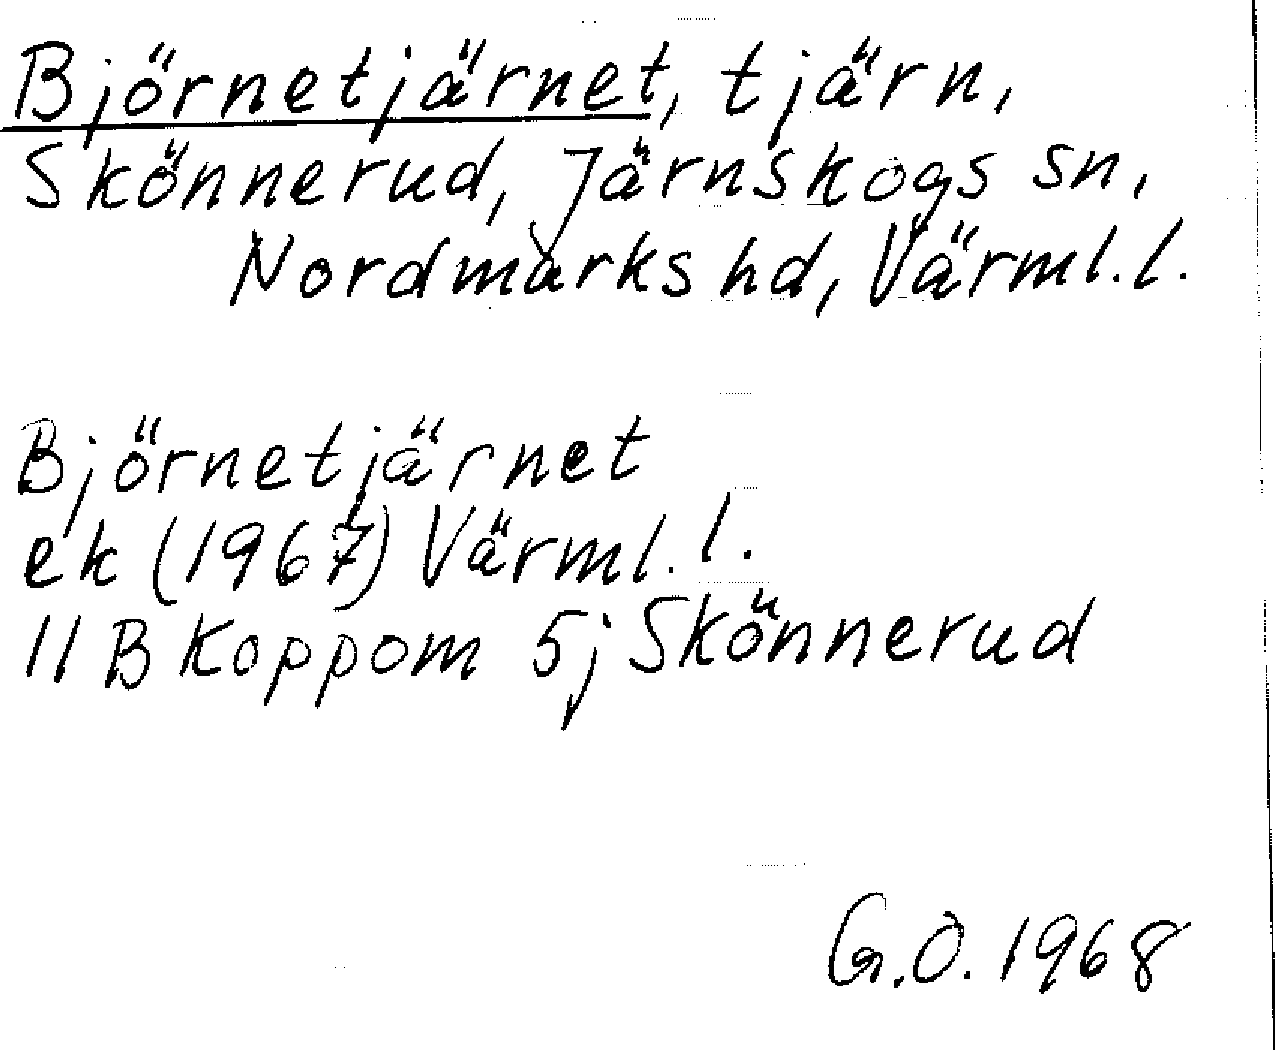 Björnetjärnet, tjärn,
Skönnerud, Järnskogs sn,
Nordmarks hd, Värml. l.
Björnetjärnet
ek (1967) Värml. l.
11 B Koppom 5j Skönnerud
G.O. 1968